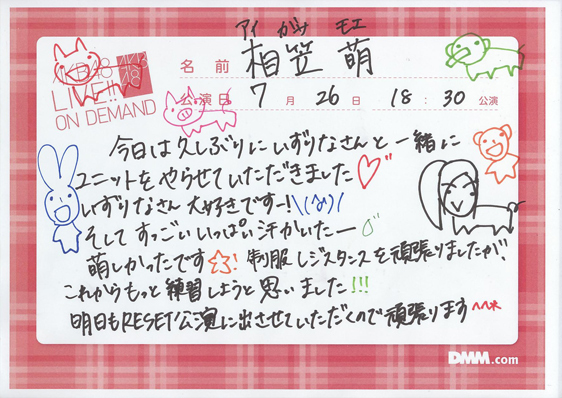 アイ がさ モエ
AKB48
LIVE!!
ON DEMAND
AKB
48
名前 相笠 萌
公演日 7月 26日 18:30公演
今日は久しぶりにいずりなさんと一緒に
ユニットをやらせていただきました♡
いずりなさん大好きですー!
そして すっごい いっぱい汗かいたー
萌しかったです☆! 制服レジスタンスを頑張りましたが、
これからもっと練習しようと思いました!!!
明日もRESET公演に出させていただくので頑張ります
DMM.com